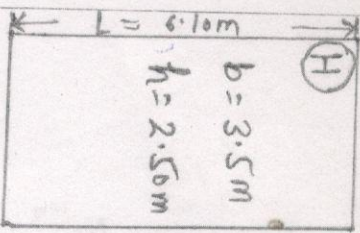 L = 6.10m
H
b = 3.5m
h = 2.50m